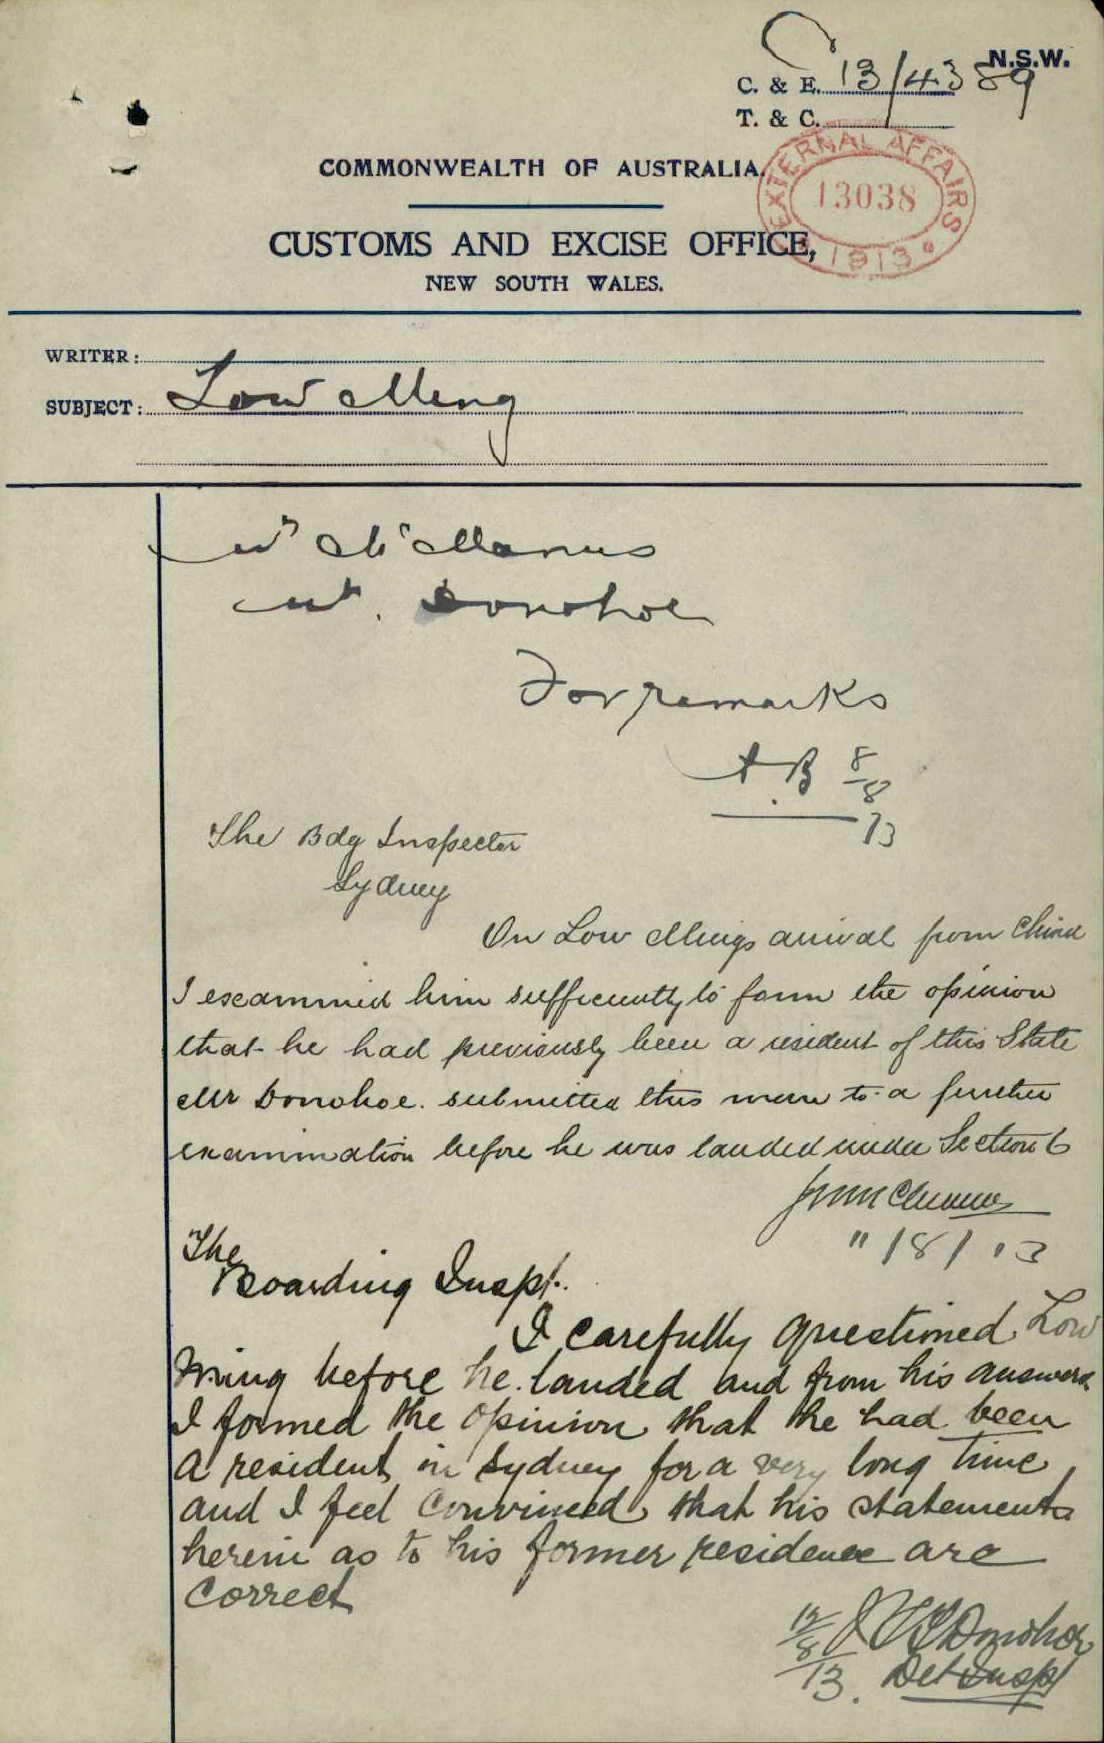 N.S.W.
C. & E. 13/4389
T. & C.
COMMONWEALTH OF AUSTRALIA.
EXTERNAL AFFAIRS
13038
1913
CUSTOMS AND EXCISE OFFICE,
NEW SOUTH WALES.
WRITER:
SUBJECT: Low Ming
Mr McManus
Mr. Donohoe
For remarks
A.B 8/8/13
The Bdg Inspector
Sydney
On Low Mings arrival from China
I examined him sufficiently to form the opinion
that he had previously been a resident of this State
Mr Donohoe. submitted this man to a further
examination before he was landed under Section 6
McManus
11/8/13
The
Boarding Inspt.
I carefully questioned Low
Ming before he landed and from his answers
I formed the opinion that he had been
a resident in Sydney for a very long time
and I feel convinced that his statements
herein as to his former residence are
correct
12/8/13. Donohoe
Det Inspt